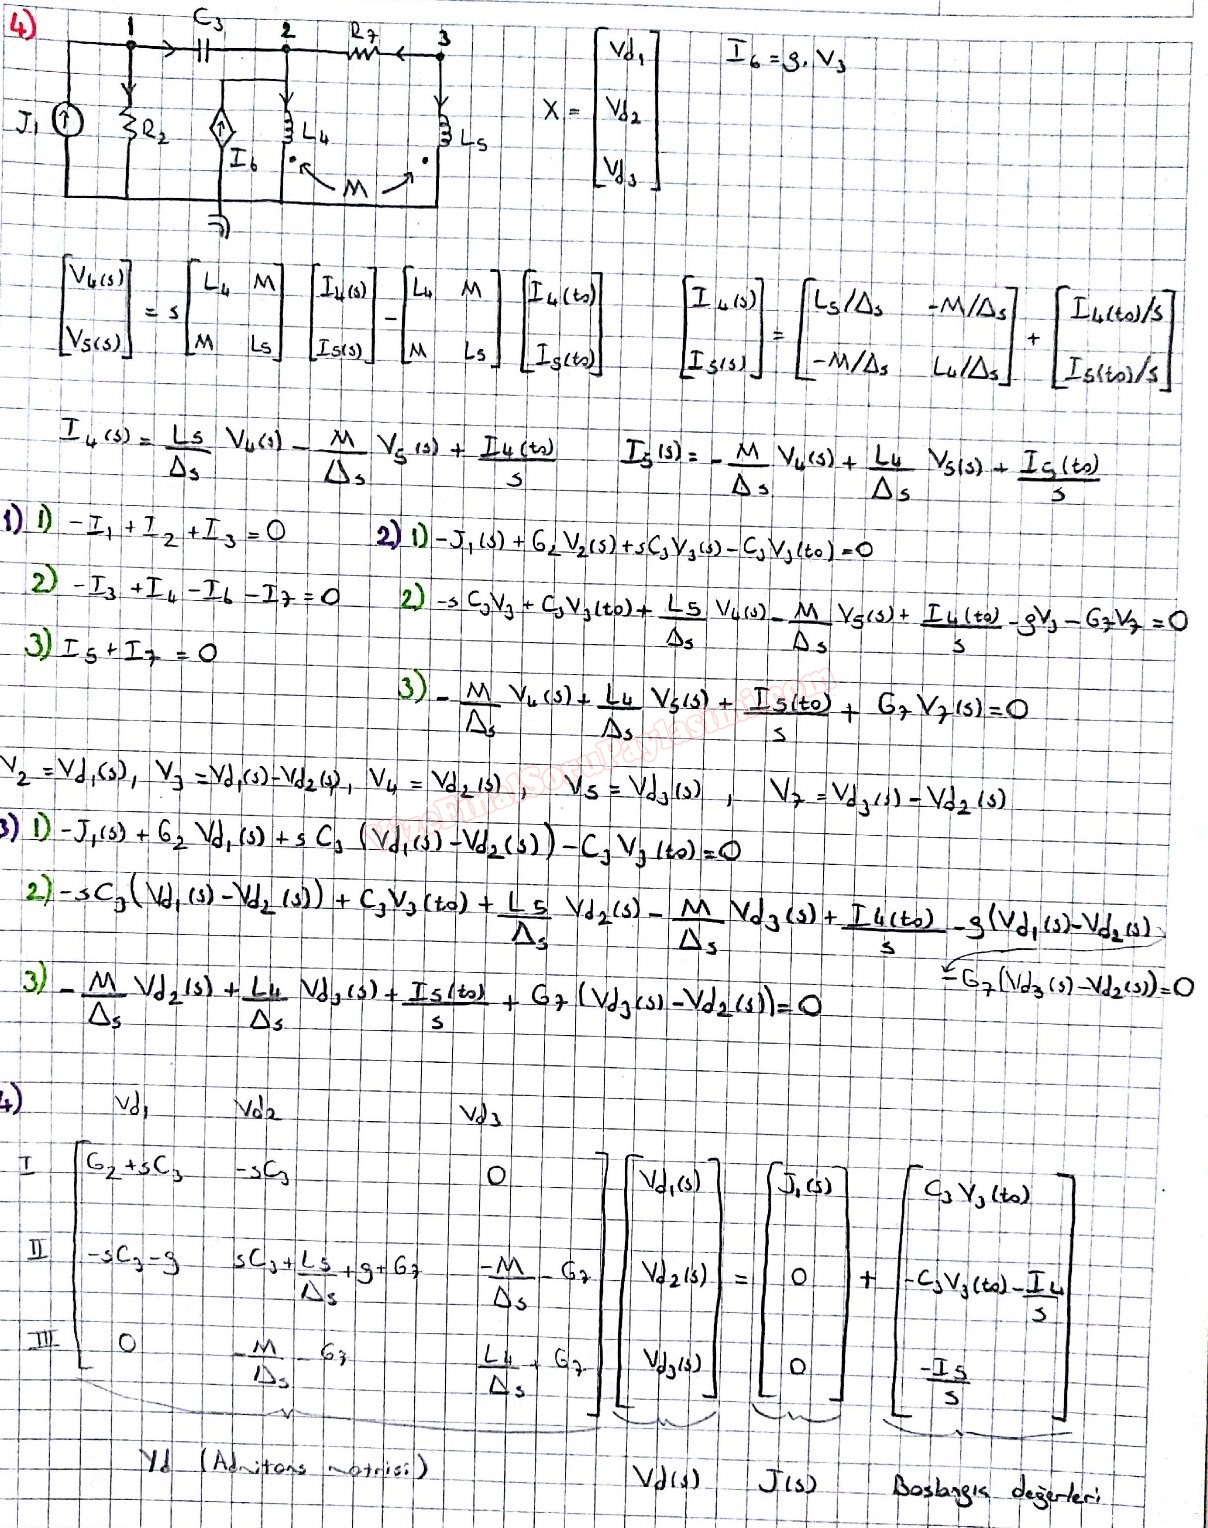 4)
1 C3 2 R7 3
J1 R2 I6 L4 M L5
X = [Vd1 Vd2 Vd3] I6 = g. V3
[V4(s) V5(s)] = s [L4 M M L5] [I4(s) I5(s)] - [L4 M M L5] [I4(to) I5(to)]
[I4(s) I5(s)] = [L5/Δs -M/Δs -M/Δs L4/Δs] + [I4(to)/s I5(to)/s]
I4(s) = L5/Δs V4(s) - M/Δs V5(s) + I4(to)/s I5(s) = - M/Δs V4(s) + L4/Δs V5(s) + I5(to)/s
1) 1) -I1 + I2 + I3 = 0
2) -I3 + I4 - I6 - I7 = 0
3) I5 + I7 = 0
2) 1) -J1(s) + G2 V2(s) + sC3V3(s) - C3V3(to) = 0
2) -s C3V3 + C3V3(to) + L5/Δs V4(s) - M/Δs V5(s) + I4(to)/s - gV3 - G7V7 = 0
3) - M/Δs V4(s) + L4/Δs V5(s) + I5(to)/s + G7 V7(s) = 0
V2 = Vd1(s), V3 = Vd1(s) - Vd2(s), V4 = Vd2(s), V5 = Vd3(s), V7 = Vd3(s) - Vd2(s)
3) 1) -J1(s) + G2 Vd1(s) + s C3 (Vd1(s) - Vd2(s)) - C3 V3(to) = 0
2) -sC3(Vd1(s) - Vd2(s)) + C3V3(to) + L5/Δs Vd2(s) - M/Δs Vd3(s) + I4(to)/s - g(Vd1(s) - Vd2(s))
- G7(Vd3(s) - Vd2(s)) = 0
3) - M/Δs Vd2(s) + L4/Δs Vd3(s) + I5(to)/s + G7 (Vd3(s) - Vd2(s)) = 0
VizeFinalSoruPaylasimi.com
4) Vd1 Vd2 Vd3
I G2 + sC3 -sC3 0 Vd1(s) J1(s) C3 V3(to)
II -sC3 - g sC3 + L5/Δs + g + G7 -M/Δs - G7 Vd2(s) = 0 + -C3V3(to) - I4/s
III 0 -M/Δs - G7 L4/Δs + G7 Vd3(s) 0 -I5/s
Yd (Admitans matrisi) Vd(s) J(s) Başlangıç değerleri